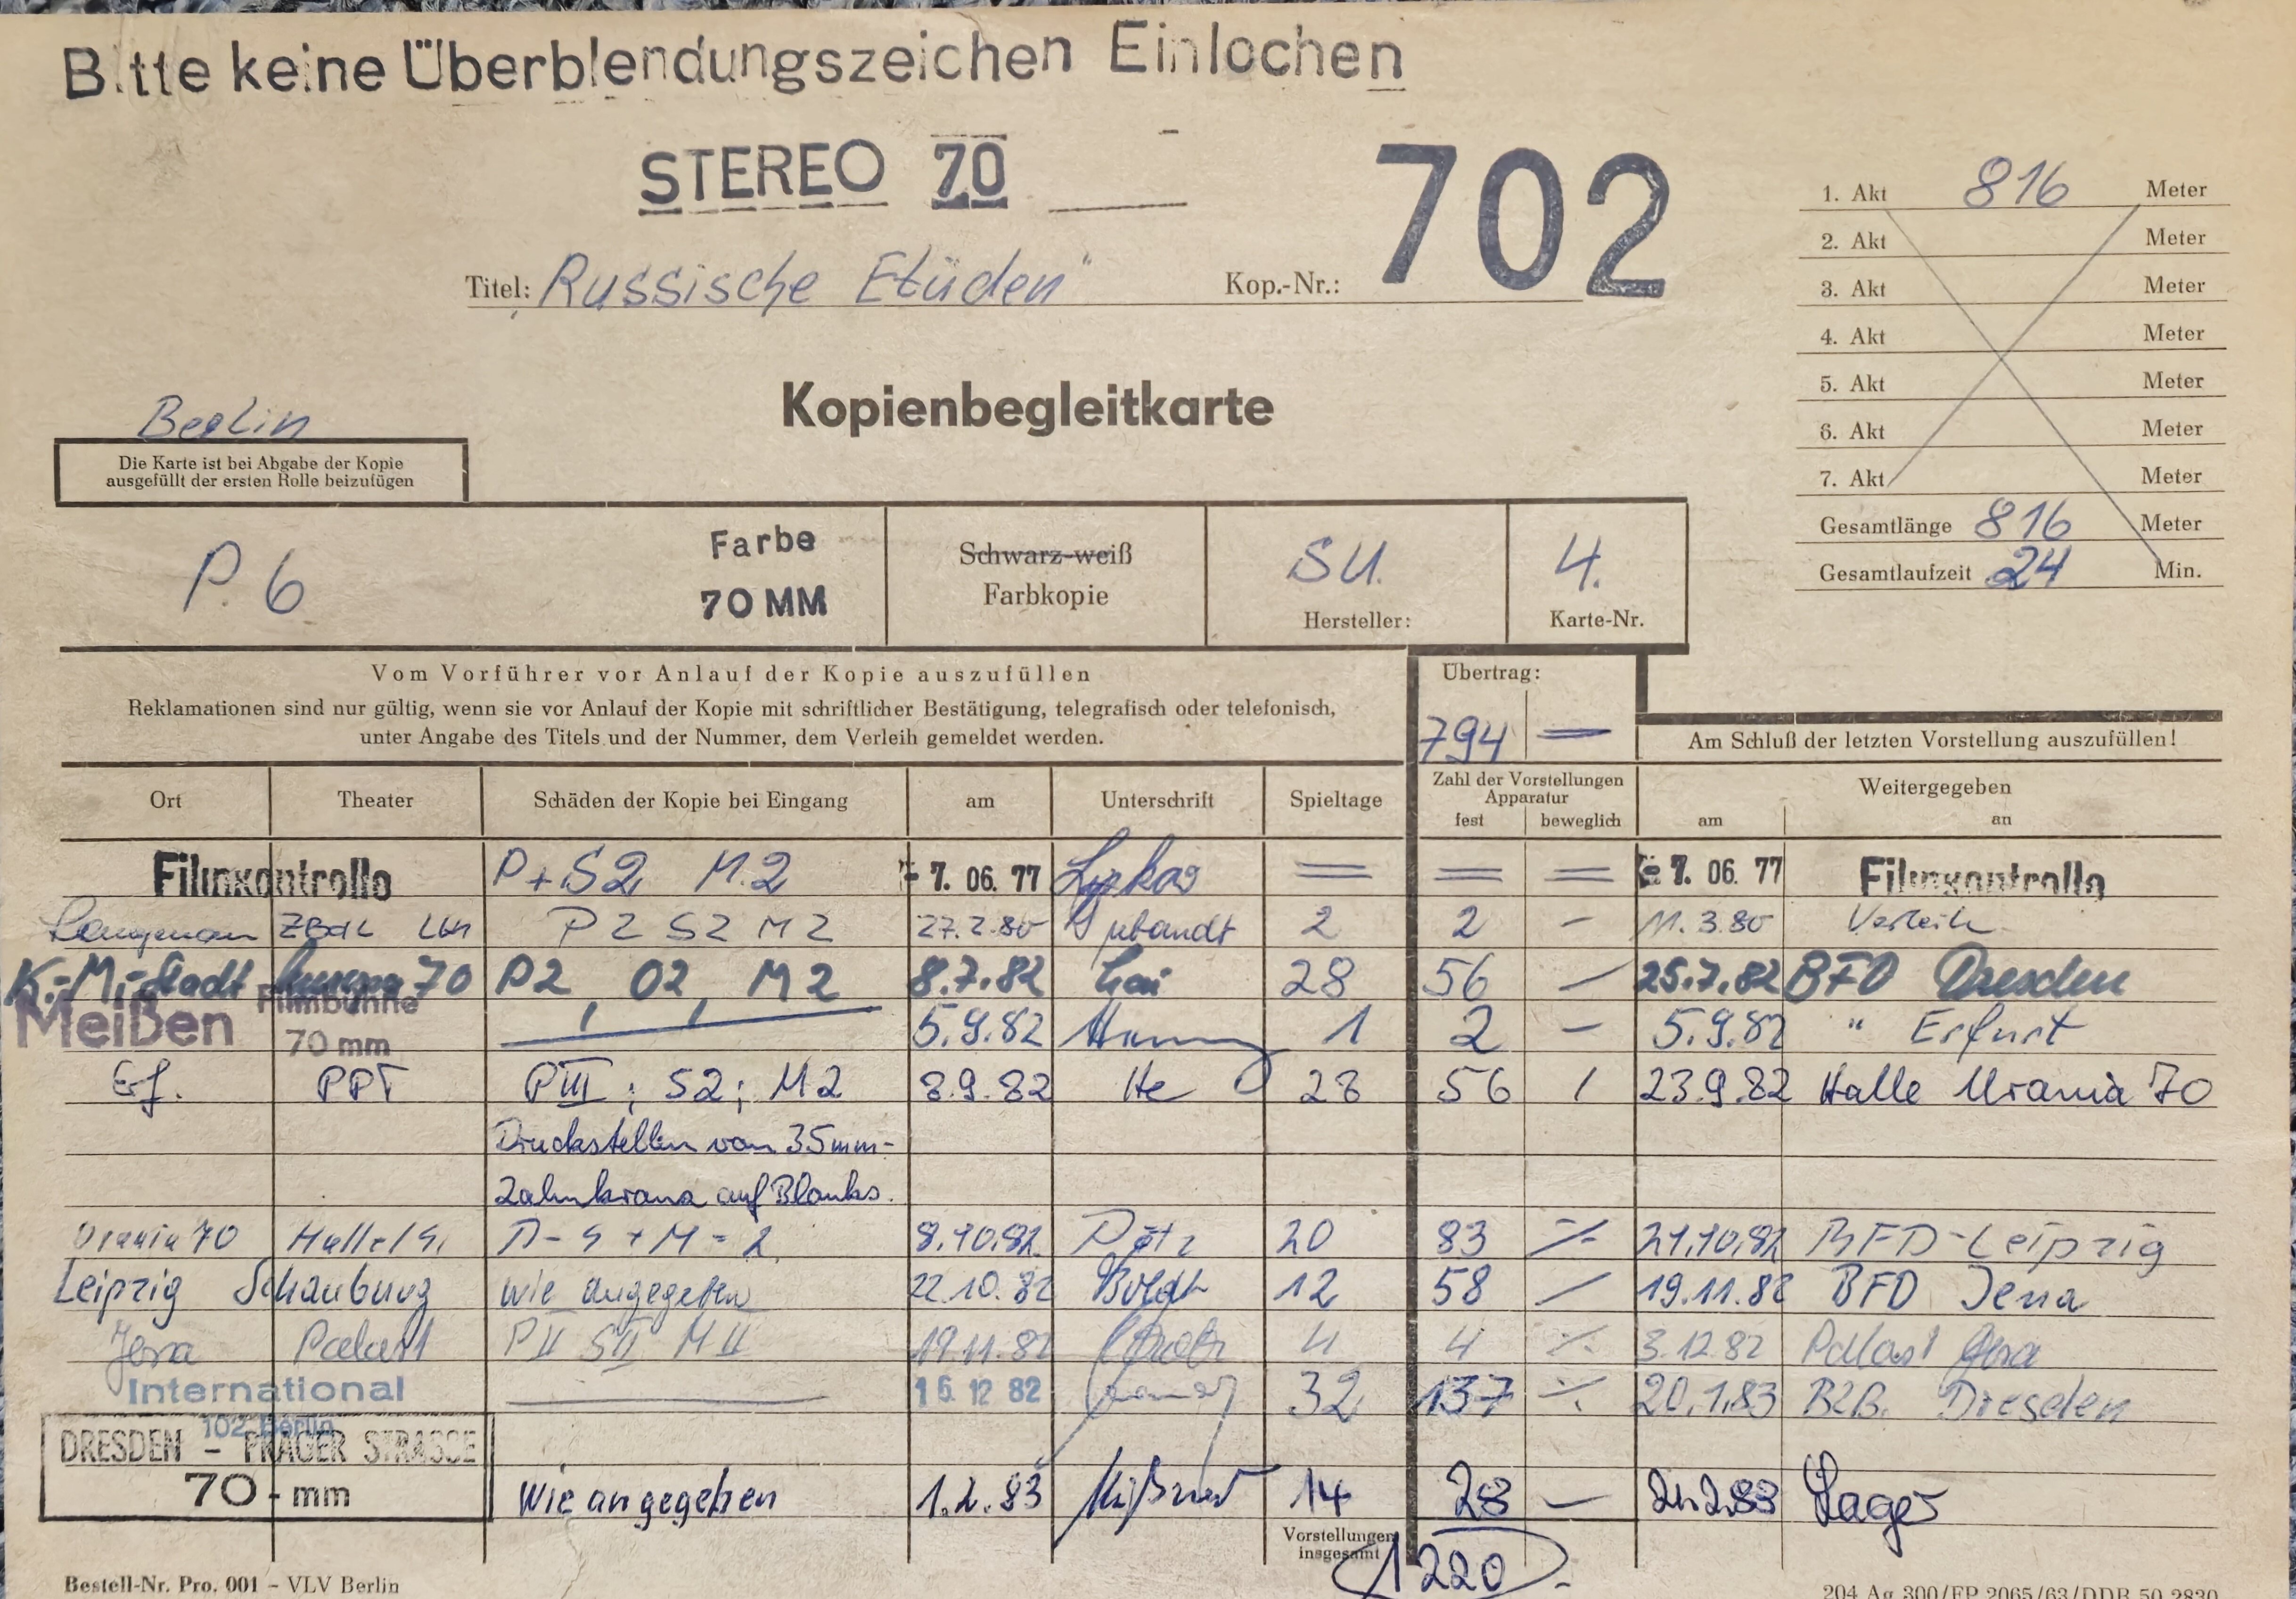 Bitte keine Überblendungszeichen Einlochen
STEREO 70
702
Titel: „Russische Etüden" Kop.-Nr.:
1. Akt 816 Meter
2. Akt Meter
3. Akt Meter
4. Akt Meter
5. Akt Meter
6. Akt Meter
7. Akt Meter
Gesamtlänge 816 Meter
Gesamtlaufzeit 24 Min.
Kopienbegleitkarte
Berlin
Die Karte ist bei Abgabe der Kopie
ausgefüllt der ersten Rolle beizufügen
P. 6
Farbe
70 MM
Schwarz-weiß
Farbkopie
SU.
Hersteller:
4.
Karte-Nr.
Vom Vorführer vor Anlauf der Kopie auszufüllen
Reklamationen sind nur gültig, wenn sie vor Anlauf der Kopie mit schriftlicher Bestätigung, telegrafisch oder telefonisch,
unter Angabe des Titels und der Nummer, dem Verleih gemeldet werden.
Übertrag:
794 —
Am Schluß der letzten Vorstellung auszufüllen!
Ort Theater Schäden der Kopie bei Eingang am Unterschrift Spieltage
Zahl der Vorstellungen
Apparatur
fest beweglich
Weitergegeben
am an
Filmkontrolle P+S2 M.2 - 7. 06. 77 = = = - 7. 06. 77 Filmkontrolle
P2 S2 M2 27.2.80 2 2 - 11.3.80 Verleih
K.-M.-Stadt Europa 70 P2, 02, M2 8.7.82 28 56 — 25.7.82 BFD Dresden
Meißen Filmbühne
70 mm 5.9.82 1 2 — 5.9.82 " Erfurt
Ef. PPT PIII; S2; M2 8.9.82 He 28 56 / 23.9.82 Halle Urania 70
Druckstellen von 35mm-
Zahnkranz auf Blanks.
Urania 70 Halle/S. P-S+M=2 8.10.82 20 83 ./. 21.10.82 BFD-Leipzig
Leipzig Schauburg wie angegeben 22.10.82 12 58 — 19.11.82 BFD Jena
Jena Palast PII SII MII 19.11.82 4 4 ./. 3.12.82 Palast Gera
International
102 Berlin
— 16. 12 82 32 137 ./. 20.1.83 BZB. Dresden
DRESDEN - PRAGER STRASSE
70-mm wie angegeben 1.2.83 14 28 — 21.2.83 Lager
Vorstellungen
insgesamt
1220
Bestell-Nr. Pro. 001 – VLV Berlin
204 Ag 300/FP 2065/63/DDR 50 2830